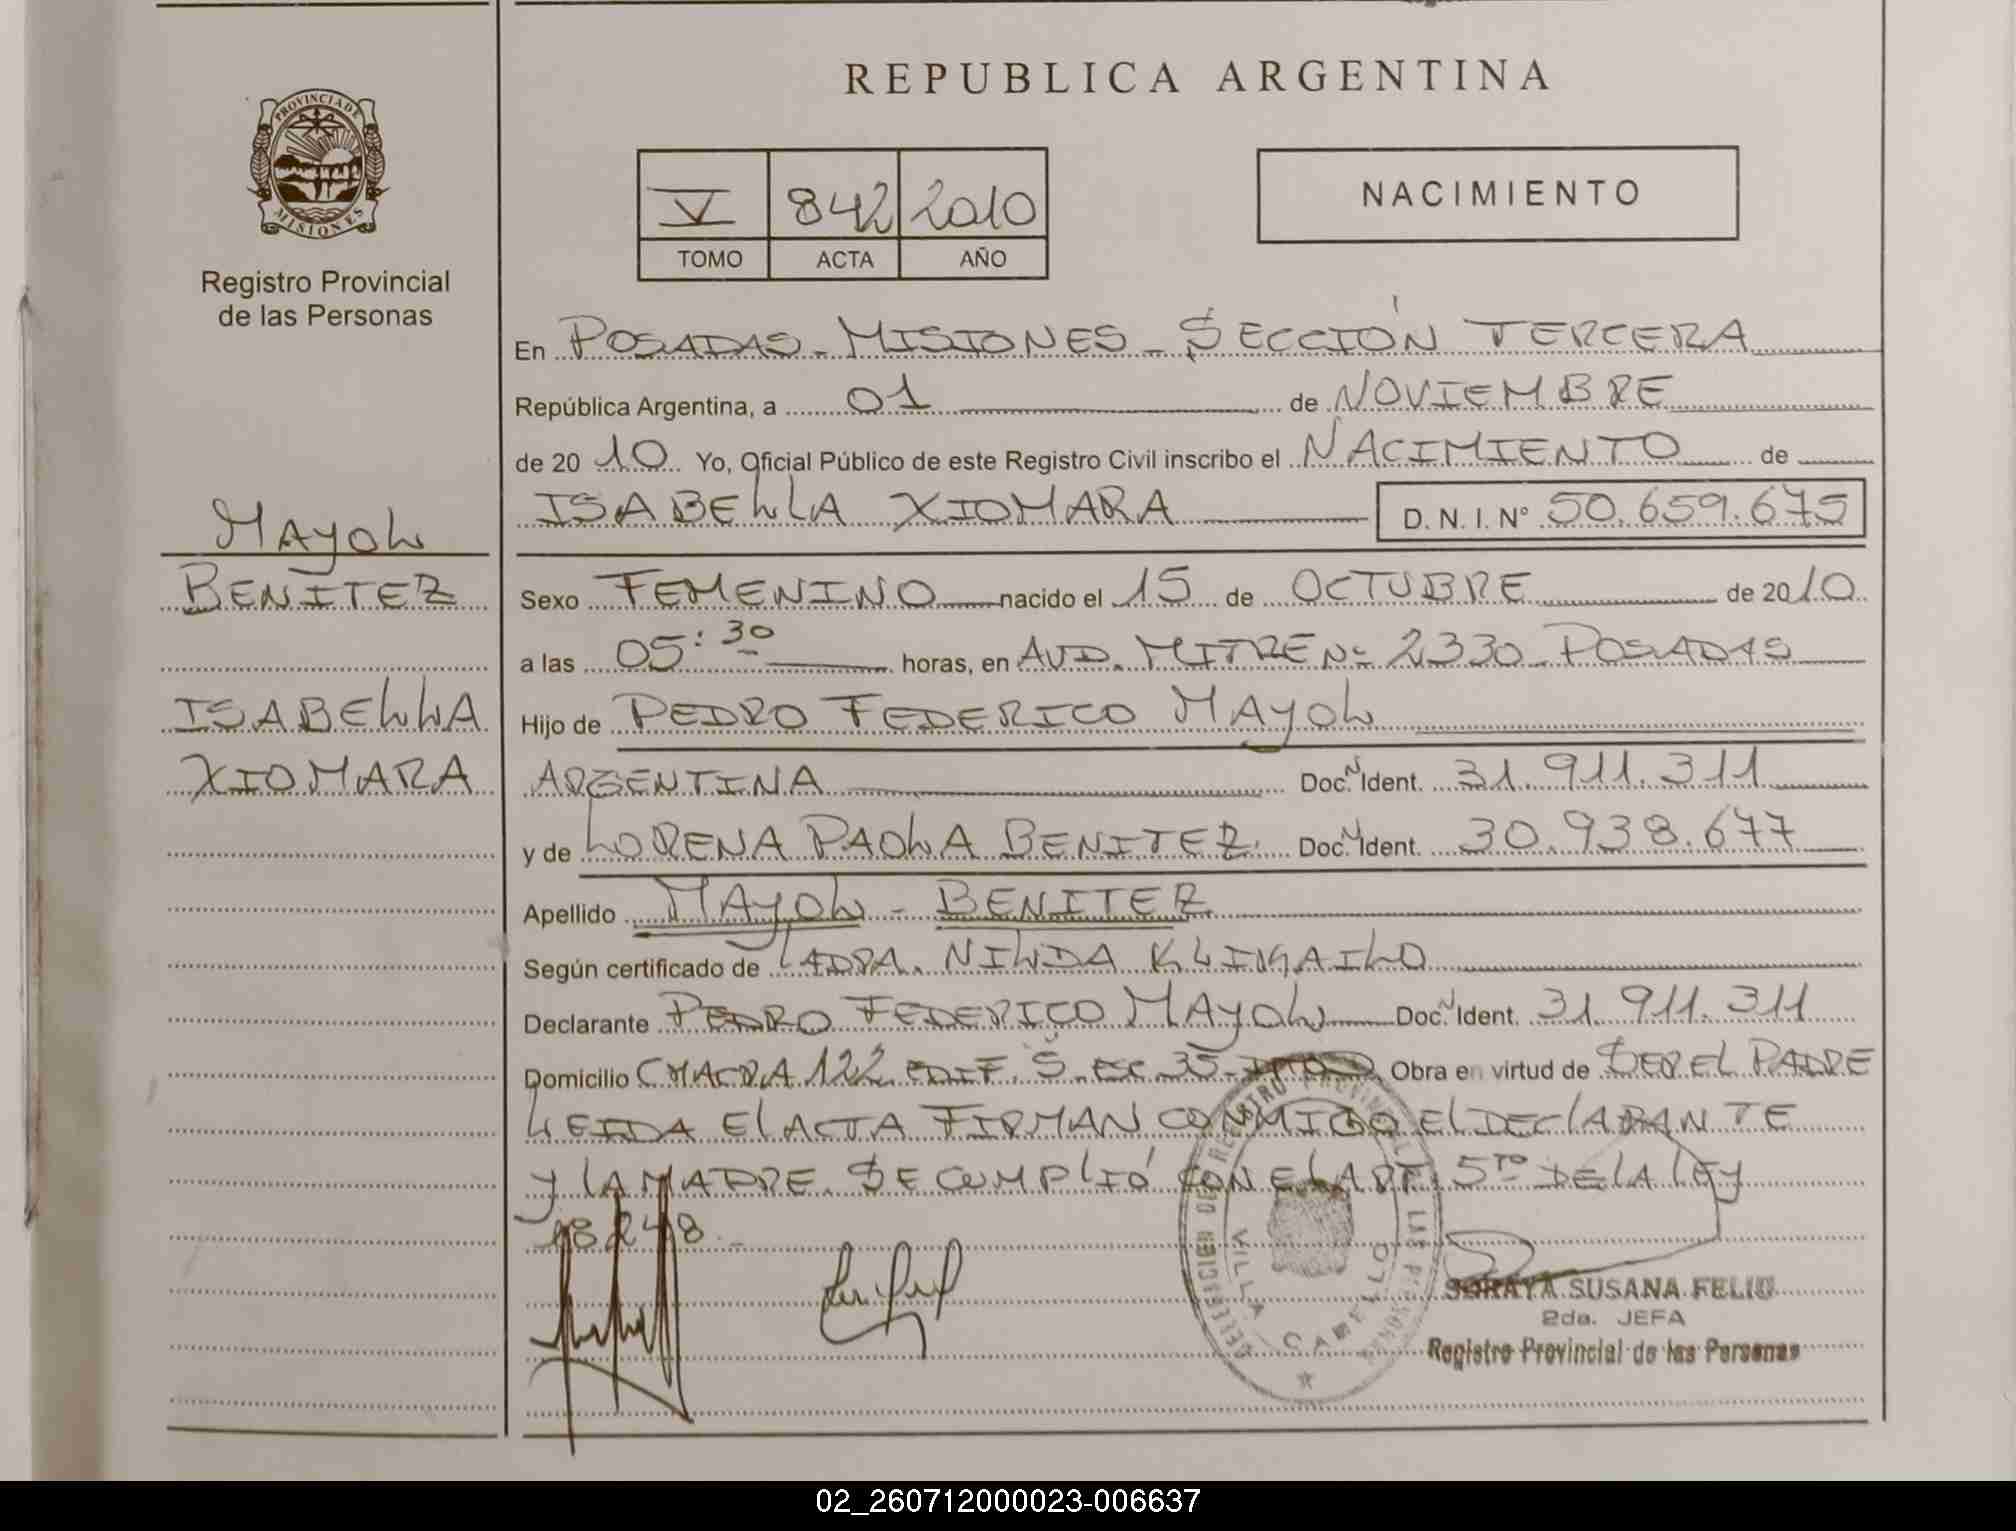 REPUBLICA ARGENTINA
PROVINCIA DE MISIONES
Registro Provincial
de las Personas
V 842 2010
TOMO ACTA AÑO
NACIMIENTO
En POSADAS - MISIONES - SECCIÓN TERCERA
República Argentina, a 01 de NOVIEMBRE
de 2010 Yo, Oficial Público de este Registro Civil inscribo el NACIMIENTO de
ISABELLA XIOMARA D. N. I. Nº 50.659.675
MAYOL
BENITEZ
ISABELLA
XIOMARA
Sexo FEMENINO nacido el 15 de OCTUBRE de 2010
a las 05:30 horas, en AVD. MITRE Nº 2330 POSADAS
Hijo de PEDRO FEDERICO MAYOL
ARGENTINA Doc. N Ident. 31.911.311
y de LORENA PAOLA BENITEZ. Doc. N Ident. 30.938.677
Apellido MAYOL - BENITEZ
Según certificado de NILDA
Declarante PEDRO FEDERICO MAYOL Doc. N Ident. 31.911.311
Domicilio CHACRA 122 EDIF. 5 35 Obra en virtud de SER EL PADRE
LEIDA El ACTA FIRMAN CONMIGO El DEClARANTE
Y lA MADRE. SE CUMPlIÓ CON El ART. 5TO DE lA LEY
18248.-
VILLA CABELLO
SORAYA SUSANA FELIU
2da. JEFA
Registro Provincial de las Personas
02_260712000023-006637